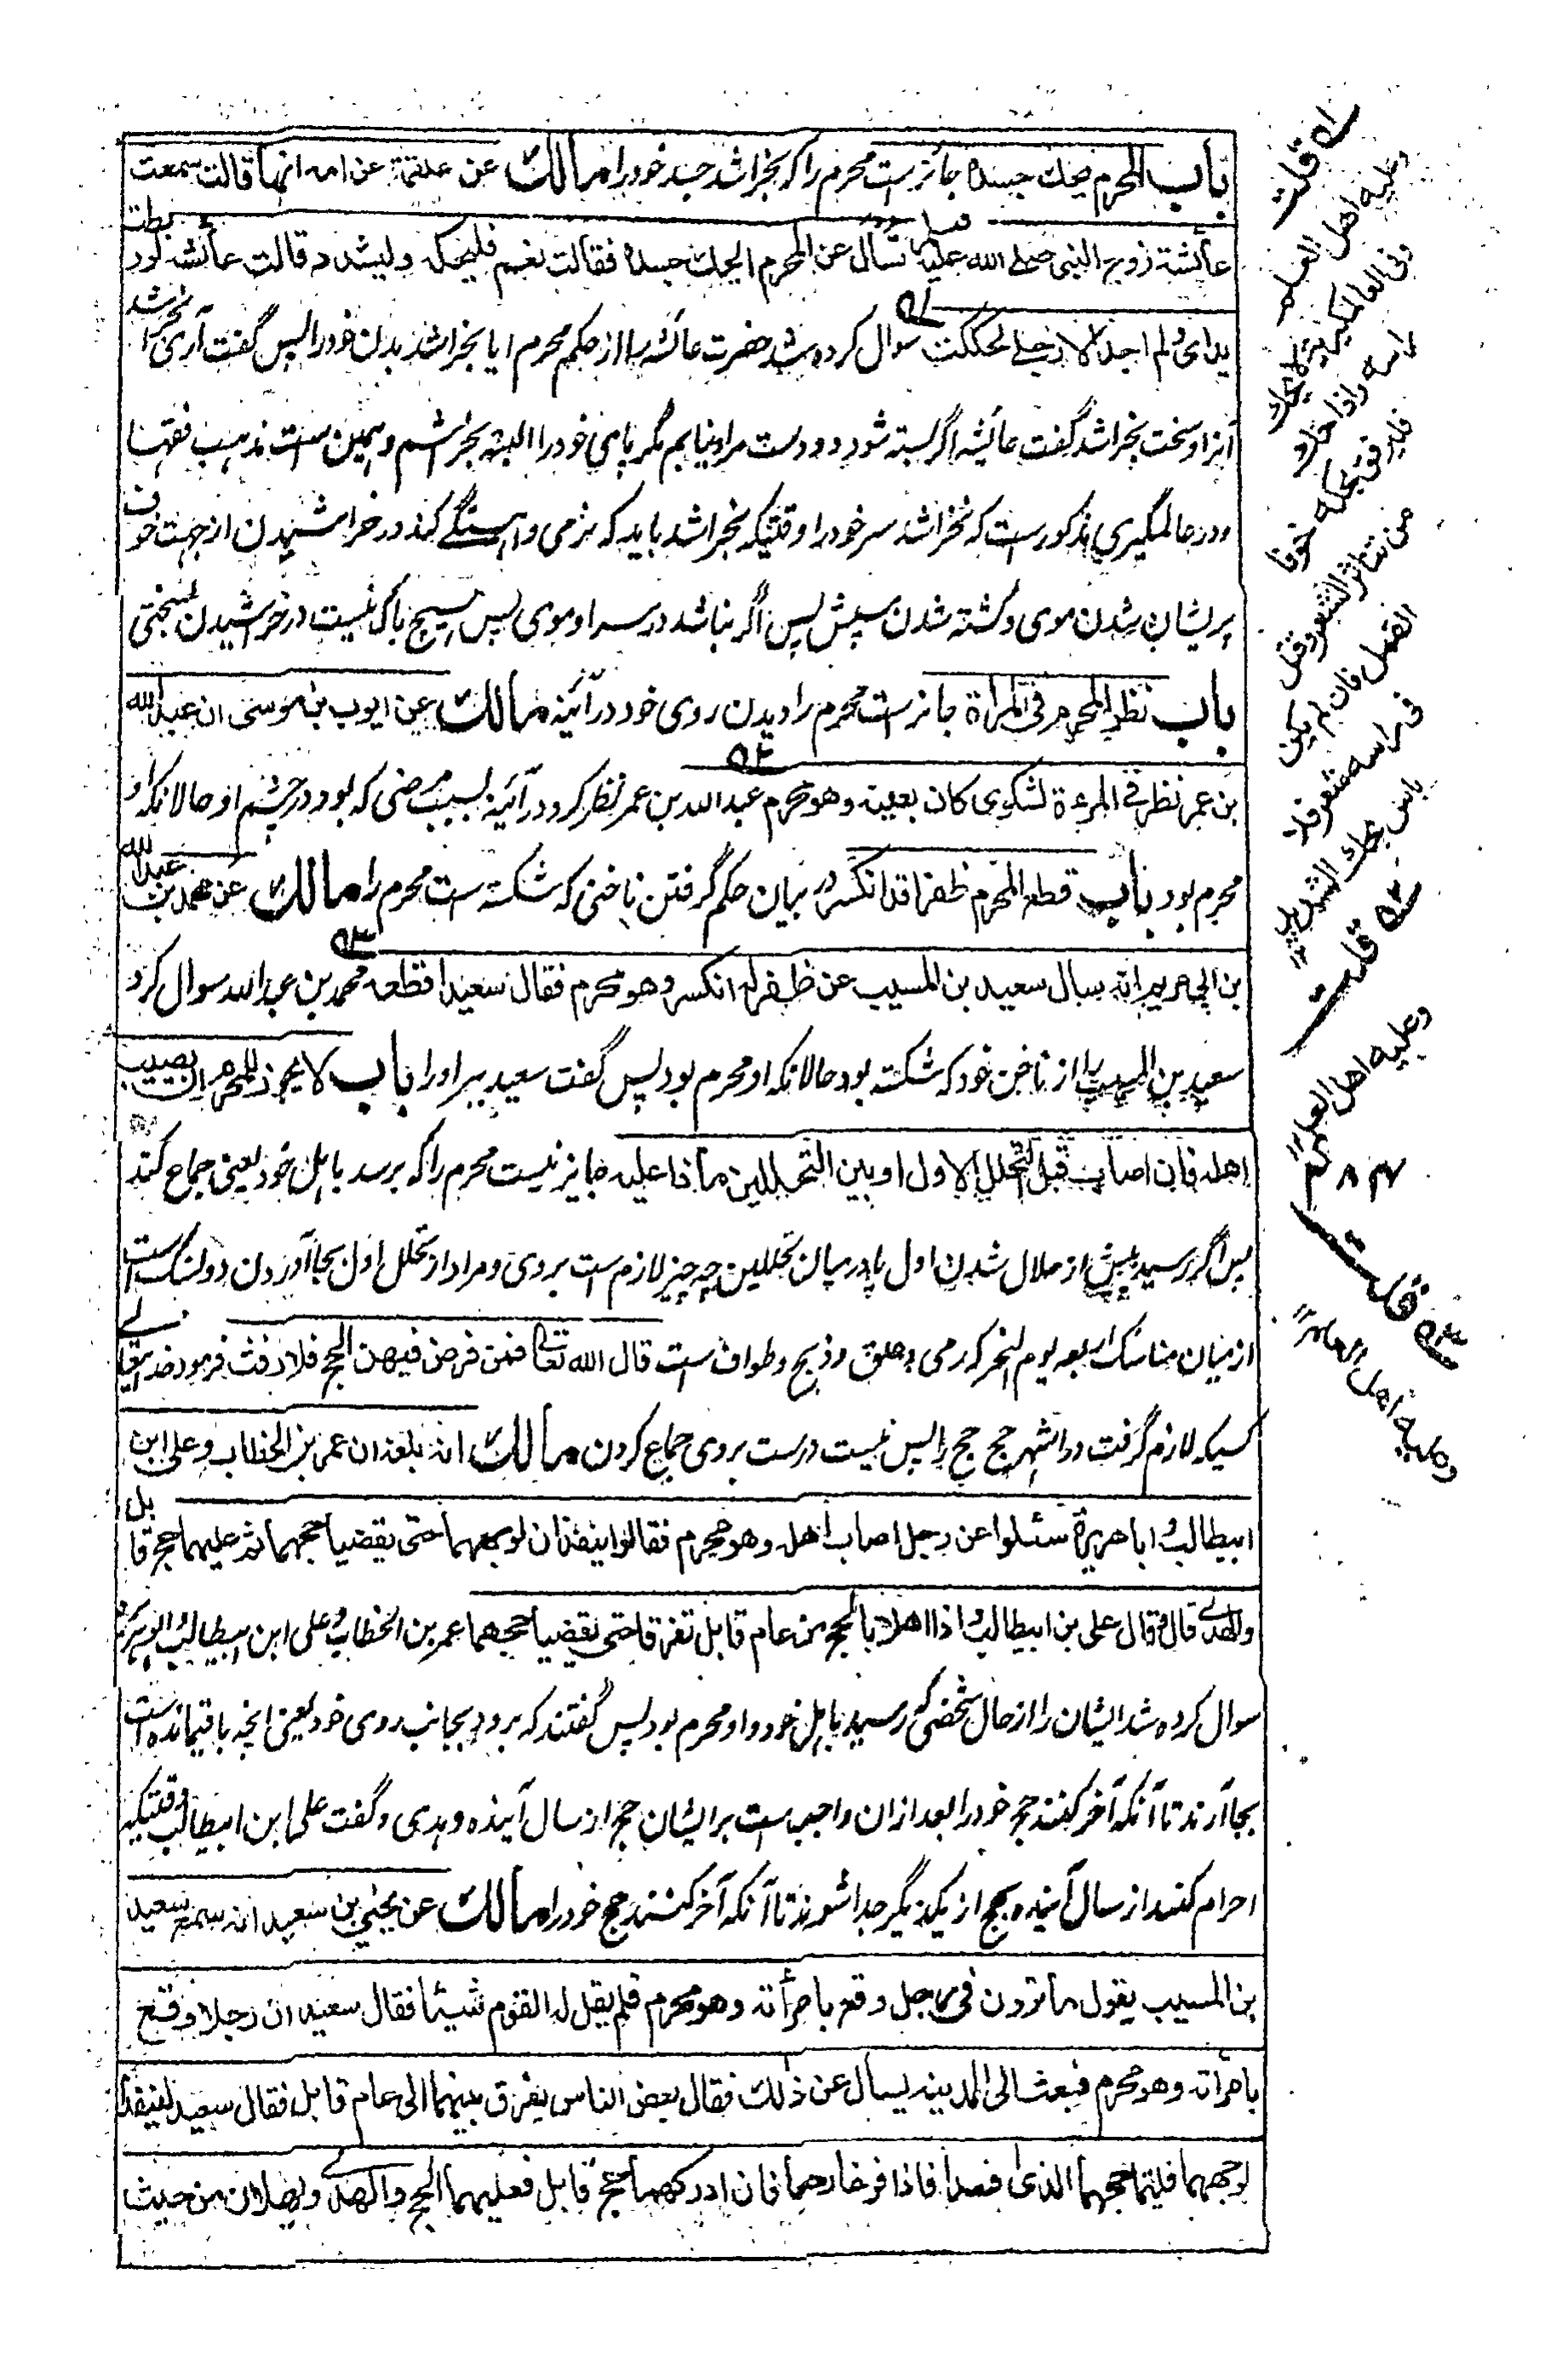 باب المحرم يحك جسده جائزست محرم را که بخراشد جسد خود را مالك عن علقمة عن امه انها قالت سمعت
عائشة زوج النبى صلے الله عليه تسأل عن المحرم ايحك جسده فقالت نعم فليحكه وليشدد قالت عائشة لو ربطت
يداى ولم اجد الا رجلے لحككت سوال کرده شد حضرت عائشه را از حکم محرم ایا بخراشد بدن خود را پس گفت آری بخراشد
آنرا و سخت بخراشد گفت عائشه اگر بسته شود دو دست مرا و نیابم مگر پای خود را البته بخراشم و همین ست مذهب فقها
و در عالمگیری مذکورست که نخراشد سر خود را و وقتیکه بخراشد باید که بنرمی و آهستگے کند در خراشیدن از جهت خوف
پریشان شدن موی و کشته شدن سپش پس اگر نباشد در سر او موی پس هیچ باک نیست در خراشیدن بسختی
باب نظر المحرم فى المراة جائزست محرم را دیدن روی خود در آئینه مالك عن ايوب بن موسى ان عبد الله
بن عمر نظر فے المرءة لشكوى كان بعينه وهو محرم عبد الله بن عمر نظر کرد در آئینه بسبب مرضی که بود در چشم او حالانکه او
محرم بود باب قطع المحرم ظفرا قد انكسر در بیان حکم گرفتن ناخنی که شکسته ست محرم را مالك عن محمد بن عبد الله
بن ابى مريم انه سال سعيد بن المسيب عن ظفر له انكسر وهو محرم فقال سعيد اقطعه محمد بن عبد الله سوال کرد
سعید بن المسیب را از ناخن خود که شکسته بود حالانکه او محرم بود پس گفت سعید ببر او را باب لا يجوز للمحرم ان يصيب
اهله فان اصاب قبل التحلل الاول او بين التحللين ماذا عليه جایز نیست محرم را که برسد باهل خود یعنی جماع کند
پس اگر رسید پیش از حلال شدن اول یا در میان تحللین چه چیز لازم ست بروی و مراد از تحلل اول بجا آوردن دو نسک ست
از میان مناسک اربعه یوم النحر که رمی و حلق و ذبح و طواف ست قال الله تعالے فمن فرض فيهن الحج فلا رفث فرمود خدایتعالے
کسیکه لازم گرفت در اشهر حج حج را پس نیست درست بروی جماع کردن مالك انه بلغه ان عمر بن الخطاب وعلى ابن
ابيطالب و ابا هريرة سئلوا عن رجل اصاب اهله وهو محرم فقالوا ينفذان لوجههما حتى يقضيا حجهما ثم عليهما حج قابل
والهدے قال وقال على بن ابيطالب و اذا اهلا بالحج من عام قابل تفرقا حتى يقضيا حجهما عمر بن الخطاب و علی ابن ابیطالب و ابوهریره
سوال کرده شد ایشان را از حال شخصی که رسید باهل خود و او محرم بود پس گفتند که برود بجانب روی خود یعنی انچه باقیمانده است
بجا آرند تا آنکه آخر کنند حج خود را بعد ازان واجب ست برایشان حج از سال آینده و هدی و گفت علی ابن ابیطالب وقتیکه
احرام کنند از سال آینده بحج از یکدیگر جدا شوند تا آنکه آخر کنند حج خود را مالك عن يحيى بن سعيد انه سمع سعيد
بن المسيب يقول ما ترون فى رجل وقع بامرأته وهو محرم فلم يقل له القوم شيئا فقال سعيد ان رجلا وقع
بامرأته وهو محرم فبعث الى المدينة يسال عن ذلك فقال بعض الناس يفرق بينهما الى عام قابل فقال سعيد لينفذا
لوجههما فليتما حجهما الذى افسدا فاذا فرغا رجعا فان ادركهما حج قابل فعليهما الحج والهدے ويهلان من حيث
ف۱ قلت
وعليه اهل العلم
وفى العالمگيرية لا يحك
راسه واذا حك
فليرفق بحكه خوفا
من تناثر الشعر وقتل
القمل فان لم يكن
فى راسه شعر فلا
باس بحك الشديد
ف۲ قلت
وعليه اهل العلم
ف۳ قلت
وعليه اهل العلم